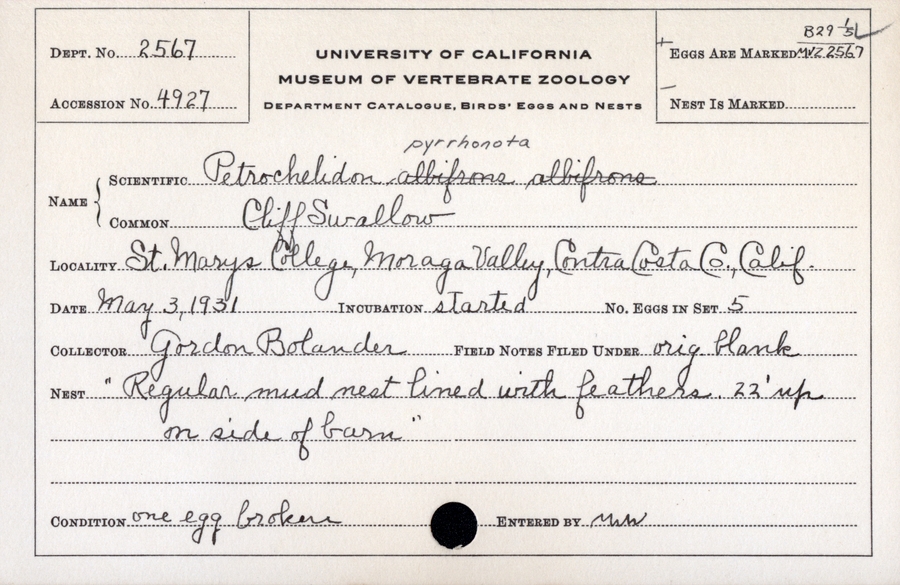 DEPT. No. 2567
ACCESSION No. 4927
UNIVERSITY OF CALIFORNIA
MUSEUM OF VERTEBRATE ZOOLOGY
DEPARTMENT CATALOGUE, BIRDS' EGGS AND NESTS
B29 1/5
EGGS ARE MARKED MVZ 2567
NEST IS MARKED
pyrrhonota
NAME
SCIENTIFIC Petrochelidon albifrons albifrons
COMMON Cliff Swallow
LOCALITY St. Marys College, Moraga Valley, Contra Costa Co., Calif.
DATE May 3, 1931 INCUBATION started NO. EGGS IN SET 5
COLLECTOR Gordon Bolander FIELD NOTES FILED UNDER orig blank
NEST "Regular mud nest lined with feathers. 22' up
on side of barn"
CONDITION one egg broken ENTERED BY